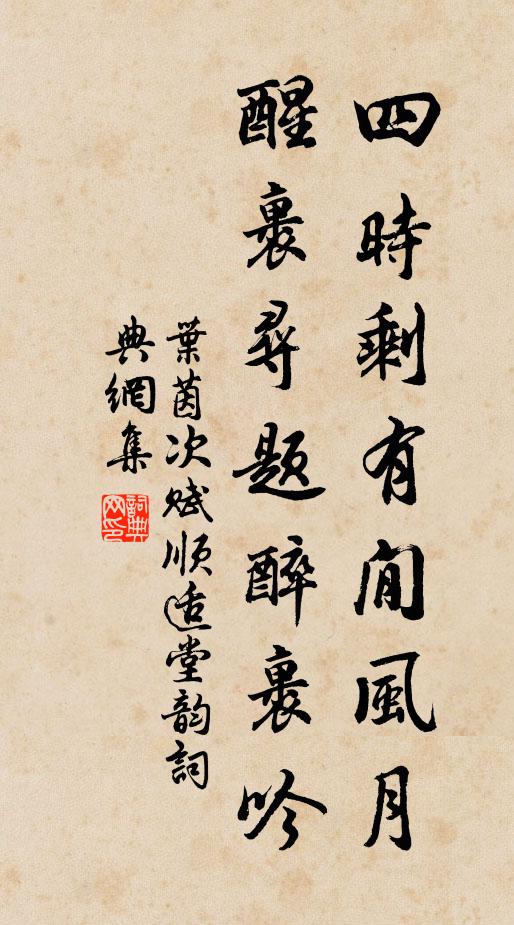 四時剩有閒風月
醒裏尋題醉裏吟
葉茵次賦順适堂韵詞
典網集
詞典網印